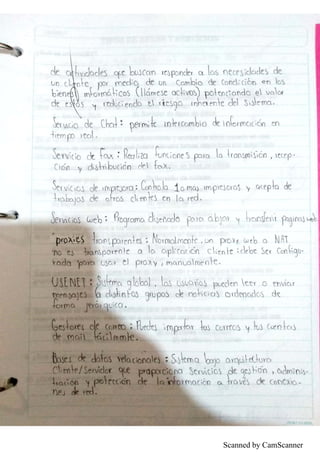 de actividades que buscan responder a las necesidades de
un cliente por medio de un cambio de condición en los
bienes informáticos (llámese activos) potenciando el valor
de estos y reduciendo el riesgo inherente del sistema.
Servicio de Chat: permite intercambio de información en
tiempo real.
Servicio de Fax: Realiza funciones para la transmisión, recep-
ción y distribución del fax.
Servicios de impresora: Controla 1 o mas impresoras y acepta
trabajos de otros clientes en la red.
Servicios web: Programa diseñado para alojar y transferir paginas web
proxies transparentes: Normalmente, un proxy web o NAT
no es transparente a la aplicación cliente: debe ser configu-
rada para usar el proxy, manualmente.
USENET: Sistema global, los usuarios pueden leer o enviar
mensajes a distintos grupos de noticias ordenados de
forma jerárquica.
Gestores de correo: Puedes importar tus correos y tus cuentas
de mail fácilmente.
Bases de datos relacionales: Sistema bajo arquitectura
Cliente/Servidor que proporciona servicios de gestión, adminis-
tración y protección de la información a través de conexio-
nes de red.
Scanned by CamScanner